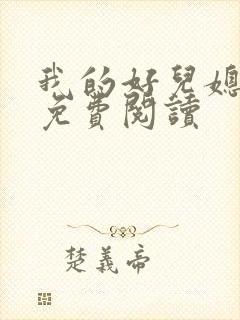 我的好兒媳
免費閱讀
楚義帝